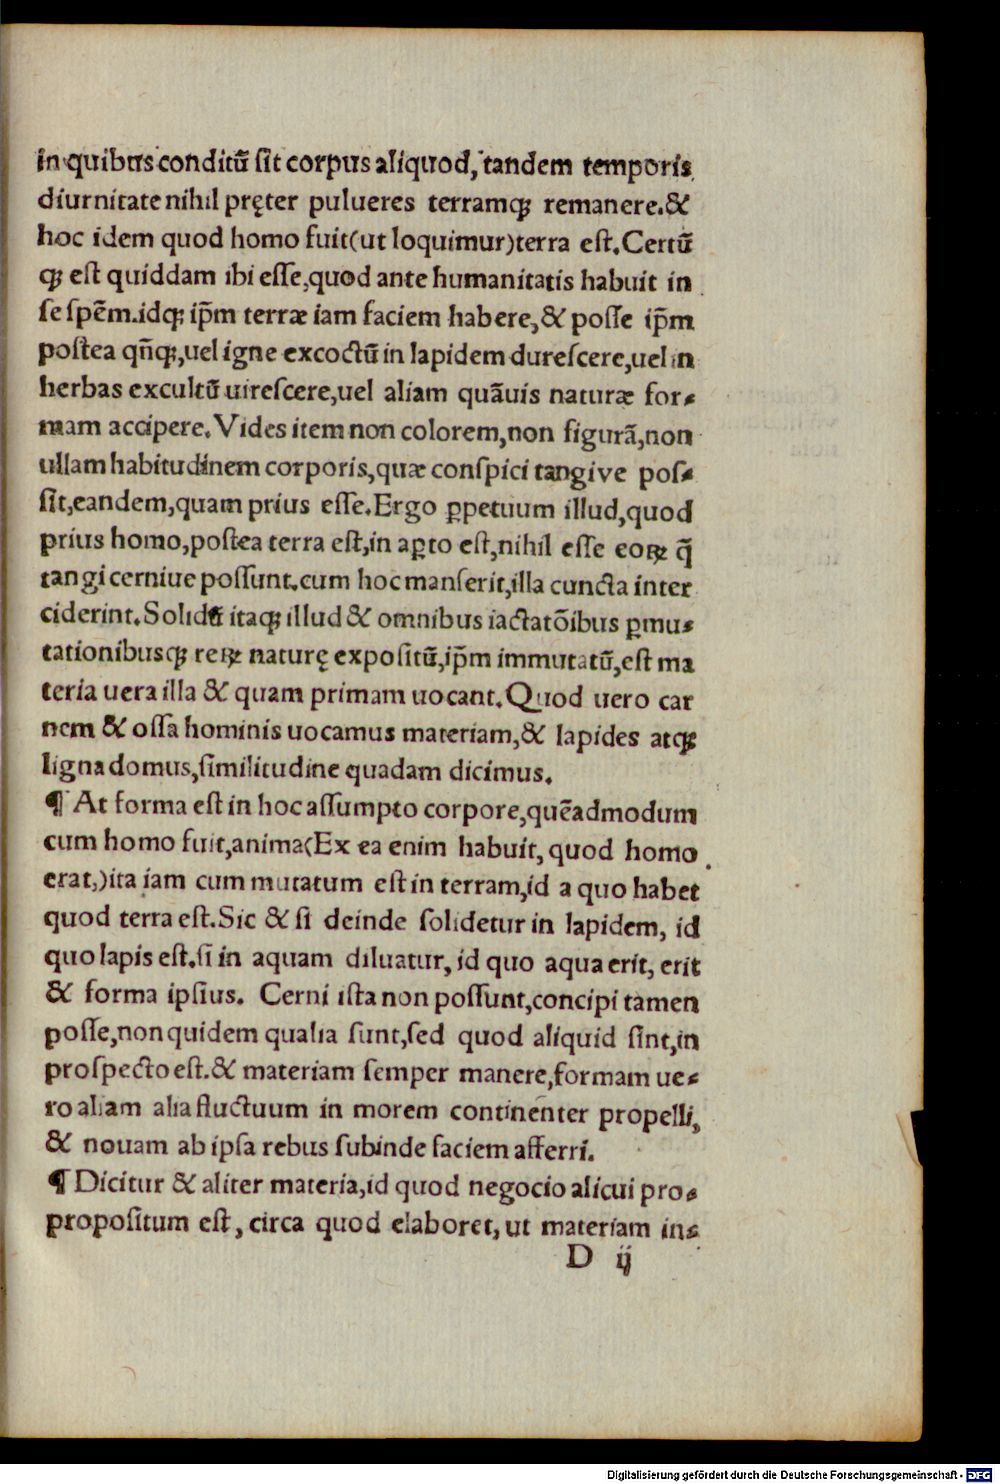 in quibus conditũ ſit corpus aliquod, tandem temporis
diurnitate nihil pręter pulueres terramqꝫ remanere.&
hoc idem quod homo fuit(ut loquimur)terra eſt.Certũ
qꝫ eſt quiddam ibi eſſe,quod ante humanitatis habuit in
ſe ſpẽm.idqꝫ ip̃m terræ iam faciem habere,& poſſe ip̃m
poſtea qñqꝫ,uel igne excoctũ in lapidem dureſcere,uel in
herbas excultũ uireſcere,uel aliam quãuis naturæ for⸗
mam accipere.Vides item non colorem,non figurã,non
ullam habitudinem corporis,quæ conſpici tangive poſ⸗
ſit,eandem,quam prius eſſe.Ergo ꝑpetuum illud,quod
prius homo,poſtea terra eſt,in aꝑto eſt,nihil eſſe eoꝝ q̃
tangi cerniue poſſunt.cum hoc manſerit,illa cuncta inter
ciderint.Solidũ itaqꝫ illud & omnibus iactatõibus ꝑmu⸗
tationibusqꝫ reꝝ naturę expoſitũ,ip̃m immutatũ,eſt ma
teria uera illa & quam primam uocant.Quod uero car
nem & oſſa hominis uocamus materiam,& lapides atqꝫ
ligna domus,ſimilitudine quadam dicimus.
¶ At forma eſt in hoc aſſumpto corpore,quẽadmodum
cum homo fuit,anima(Ex ea enim habuit, quod homo
erat,)ita iam cum mutatum eſt in terram,id a quo habet
quod terra eſt.Sic & ſi deinde ſolidetur in lapidem, id
quo lapis eſt.ſi in aquam diluatur, id quo aqua erit, erit
& forma ipſius. Cerni iſta non poſſunt,concipi tamen
poſſe,non quidem qualia ſunt,ſed quod aliquid ſint,in
proſpecto eſt.& materiam ſemper manere,formam ue⸗
ro aliam alia fluctuum in morem continenter propelli,
& nouam ab ipſa rebus ſubinde faciem afferri.
¶ Dicitur & aliter materia,id quod negocio alicui pro⸗
propoſitum eſt, circa quod elaboret, ut materiam in⸗
D ij
Digitalisierung gefördert durch die Deutsche Forschungsgemeinschaft - DFG